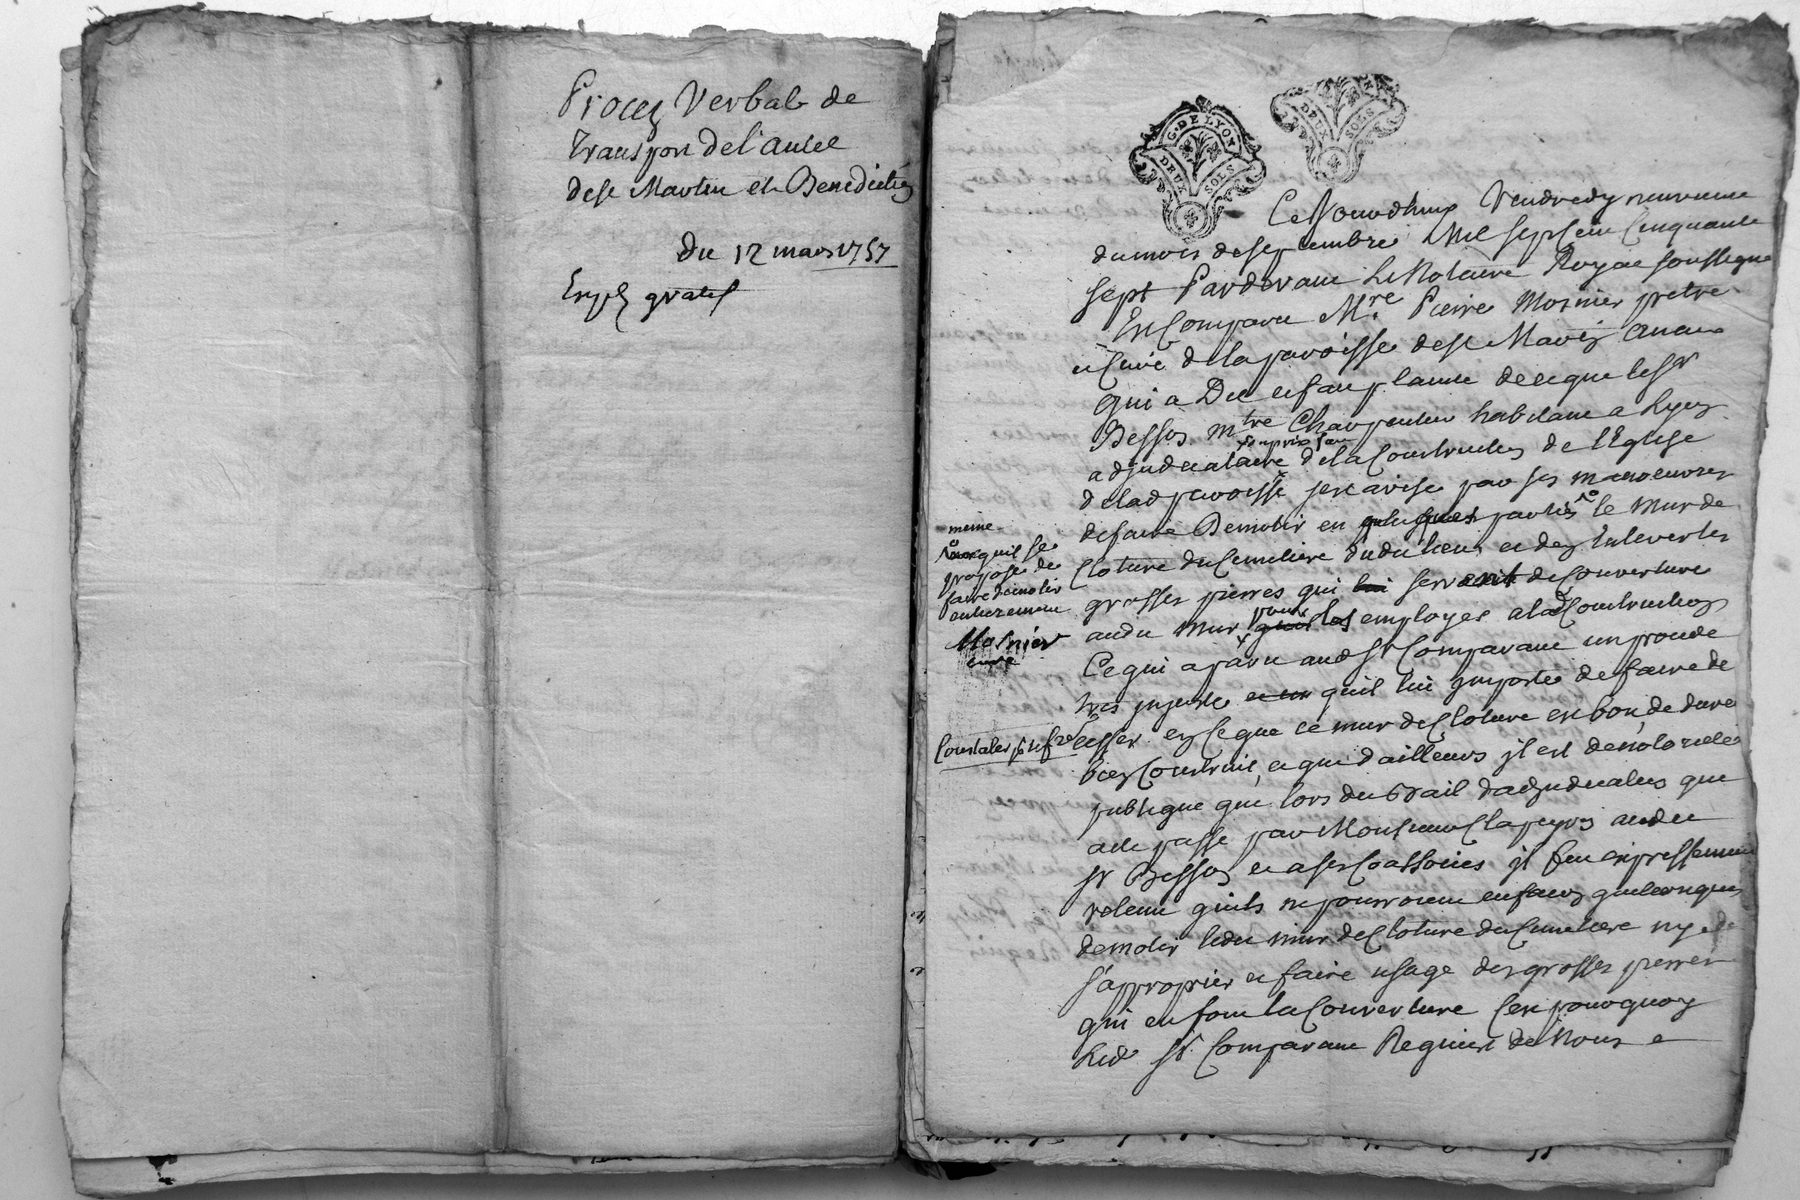 Procez Verbal de
Transport de l'autel
de st Martin et Benediction
du 12 mars 1757
Exp gratis
G. DE LYON
DEUX SOLS
DEUX SOLS
Cejourdhuy Vendredy neuvieme
du mois de septembre Mil sept cent cinquante
sept Pardevant Le Notaire Royal soussigné
En Comparu Mre Pierre Mosnier pretre
et curé de la paroisse de st
qui a Dit et fait plainte de ce que le sr
Bessos mtre Charpentier habitant a Lyon
adjudicataire de la Construction de l'Eglise
de lad paroisse sest avisé par ses manoeuvres
de faire Demolir en quelques parties le Mur de
Cloture du Cimetiere dudit lieu et den Enlever les
grosses pierres qui lui servent de Couverture
audit mur pour les employer a lad Construction
Ce qui a paru aud sr Comparant un procédé
tres injuste et un quil lui importe de faire
cesser en ce que ce mur de Cloture est bon, de durée
bien Construit, et que d'ailleurs il est de notorieté
publique que lors du Bail d'adjudication qui
a été passé par Monsieur Clapeyron audit
sr Bessos et a ses Coassociés il fut expressement
retenu quils ne pourroient en façon quelconques
demolir ledit mur de Cloture du Cimetiere ny
s'approprier et faire usage des grosses pierres
qui en font la Couverture Cest pourquoy
Led sr Comparant Requiert de Nous
meme
quil se
propose de
faire demolir
entierement
Mosnier
curé